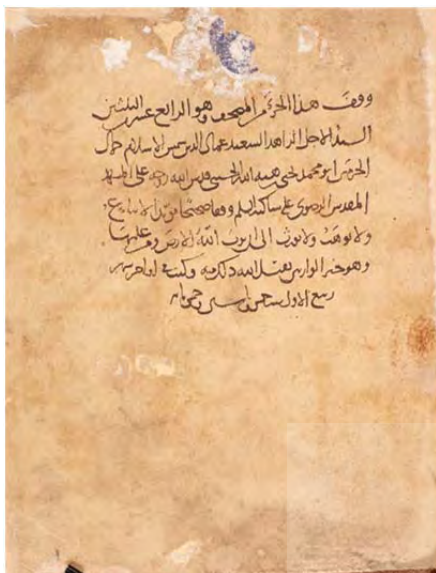 وقف هذا الجزء من المصحف وهو الرابع عشر من الثلثين
السيد الاجل الزاهد السعيد عماد الدين شمس الاسلام جمال
الحرمين ابو محمد يحيى بن هبة الله الحسيني قدس الله روحه على المشهد
المقدس الرضوى على ساكنه السلم وقفا صحيحا مؤبدا لا يباع
ولا يوهب ولا يورث الى ان يرث الله الارض ومن عليها
وهو خير الوارثين تقبل الله ذلك منه وكتب في اواخر شهر
ربيع الاول سنة خمس وخمس مائة